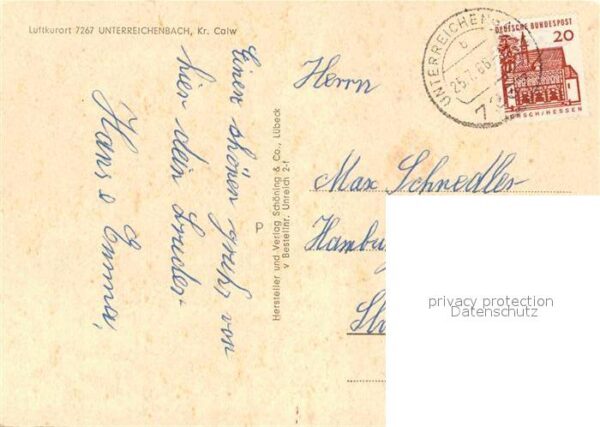 Luftkurort 7267 UNTERREICHENBACH, Kr. Calw
Einen schönen gruß von
hier dein Bruder
Hans & Emma,
Hersteller und Verlag Schöning & Co., Lübeck
v Bestellnr. Unreich 2-f
P
UNTERREICHENBACH
b
DEUTSCHE BUNDESPOST
20
LORSCH/HESSEN
Herrn
Max Schnedler
Hambu
privacy protection
Datenschutz